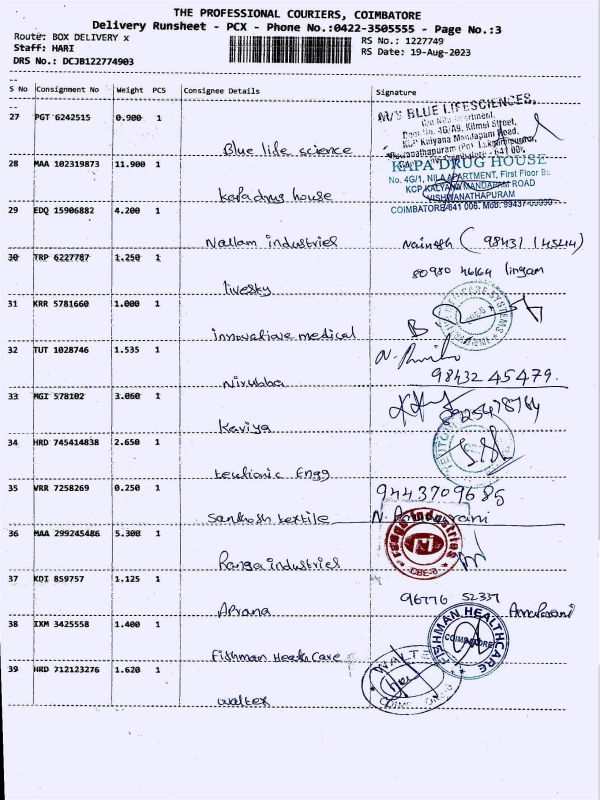 THE PROFESSIONAL COURIERS, COIMBATORE
Delivery Runsheet - PCX - Phone No.:0422-3505555 - Page No.:3
Route: BOX DELIVERY x
RS No.: 1227749
Staff: HARI
RS Date: 19-Aug-2023
DRS No.: DCJB122774903
S No Consignment No Weight PCS Consignee Details Signature
27 PGT 6242515 0.900 1
Blue life science
M/S BLUE LIFESCIENCES,
28 MAA 102319873 11.900 1
Kapa drug house
KAPA DRUG HOUSE
No. 4G/1, NILA APARTMENT, First Floor
KCP KALYANA MANDAPAM ROAD
VISHWANATHAPURAM
COIMBATORE-641 006. Mob: 99437-09090
29 EDQ 15906882 4.200 1
Nallam industriel
Nainesh (98431 14544)
30 TRP 6227787 1.250 1
livesky
80980 46164 lingam
31 KRR 5781660 1.000 1
innovative medical
32 TUT 1028746 1.535 1
Nirubba
98432 45479.
33 MGI 578102 3.060 1
Kaviya
34 HRD 745414838 2.650 1
Engg
35 VRR 7258269 0.250 1
Santhosh textile
9443709685
36 MAA 299245486 5.300 1
Ranga industriel
ranga industries
CBE-6
37 KDI 859757 1.125 1
96776 52337
38 IXM 3425558 1.400 1
Fishman Heath Care
FISHMAN HEALTHCARE
COIMBATORE
39 HRD 712123276 1.620 1
waltex